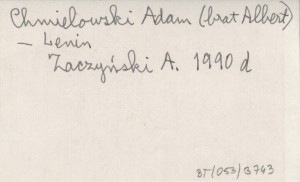 Chmielowski Adam (brat Albert)
— Lenin
Zaczyński A. 1990 d
BT/053/3743